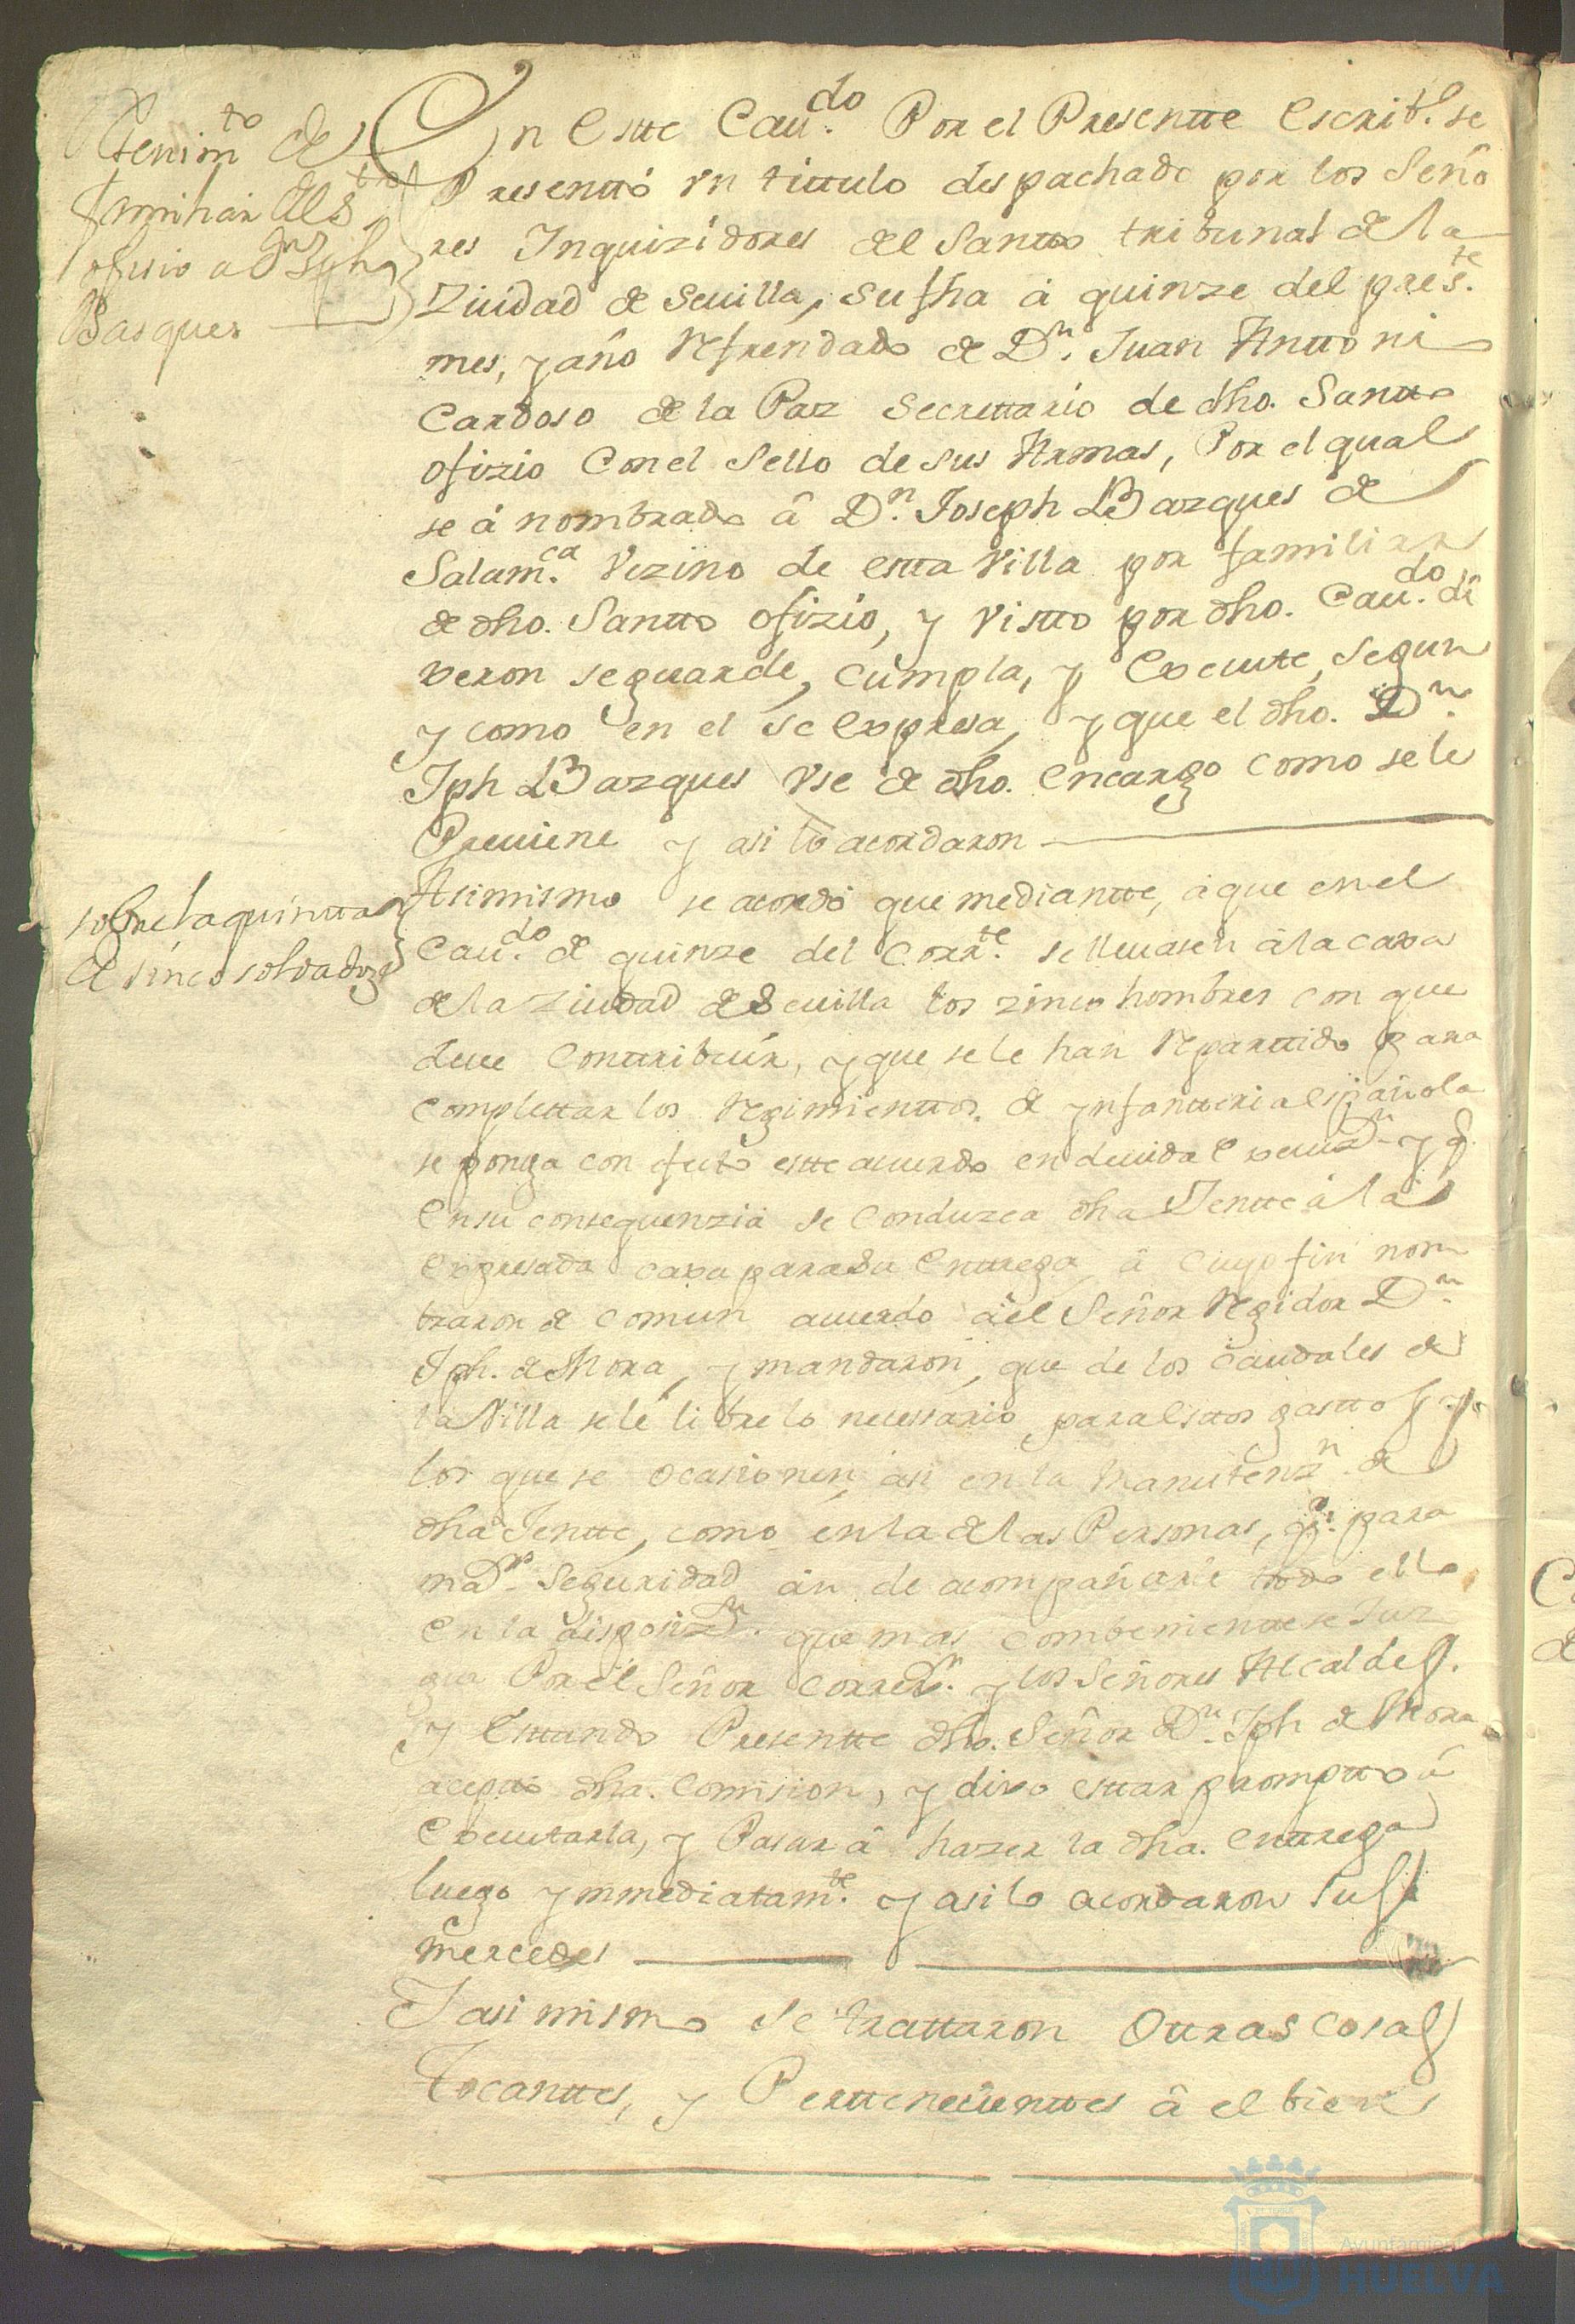 tenim.to de
familiar del S.to
ofisio a Dn Jph
Basques
En Estte Cau.do Por el Presentte Escrib.o se
Presenttó vn tittulo despachado por los Seño
res Inquizidores del Santto tribunal de la
Ziudad de Seuilla, su fha â quinze del pres.te
mes, y año Refrendado de Dn. Juan Anttoni
Cardoso de la Paz Secrettario de dho. Santto
ofizio Con el Sello de sus Armas, Por el qual
se á nombrado â Dn. Joseph Bazques de
Salam.ca Vezino de estta Villa por familiar
de dho. Santto ofizio, y Vistto por dho. Cau.do di
xeron se guarde, Cumpla, y Execute, segun
y como en el se Expresa, y que el dho. Dn.
Jph Bazques Vse de dho. Encargo Como se le
Preuiene y asi lo acordaron
sobre la quintta
de sinco soldados
Asimismo se acordó que mediantte, â que en el
Cau.do de quinze del Corr.te se lleuasen â la caxa
de la Ziudad de Seuilla los zinco hombres con que
deue Conttribuir, y que se le han Reparttido para
Complettar los Regimienttos de ynfantteria española
se ponga con efecto estte acuerdo en deuida Execuzn. y q.
En su consequenzia se Conduzca dha Jentte â la
Expresada caxa para su Enttrega, â Cuyo fin nom
braron de Comun acuerdo âel Señor Regidor Dn.
Jph. de Mora, y mandaron, que de los Caudales de
la Villa se le libre lo necessario para esttos gasttos y
los que se ocasionen, asi en la Manutenzn. de
dha Jentte, como en la de las Personas, q.e para
mor. Seguridad ân de acompañarle todo ello
En la disposizn. que mas Combenientte se Juz
gue Por el Señor Correx.r y los Señores Alcaldes.
y Esttando Presentte dho. Señor Dn. Jph de Mora
acepttó dha. Comision, y dixo esttar prompto â
Executarla, y Pasar â hazer la dha. Enttrega
luego ymmediatam.te y asi lo acordaron Sus
mercedes
Y asi mismo se trattaron Ottras Cosas
tocanttes, y Pertteneciénttes â el bien
Ayuntamiento
HUELVA